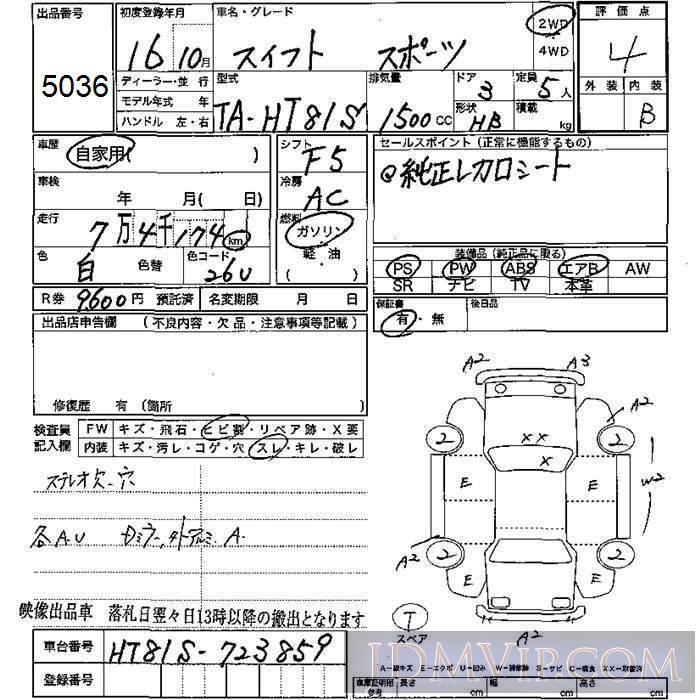 出品番号
5036
初度登録年月
16年10月
ディーラー・並行
モデル年式 年
ハンドル 左・右
車名・グレード
スイフト スポーツ
2WD
4WD
型式
TA-HT81S
排気量
1500CC
ドア
3
形状
HB
定員
5人
積載
kg
評価点
4
外装 内装
B
車歴
自家用( )
車検
年 月( 日)
走行
7万4千174km
色
白
色替
色コード
26U
R券 9600円 預託済 名変期限 月 日
シフト
F5
冷房
AC
燃料
ガソリン
軽・油
( )
セールスポイント (正常に機能するもの)
@純正レカロシート
装備品 (純正品に限る)
PS PW ABS エアB AW
SR ナビ TV 本革
保証書
有・無
後日品
出品店申告欄 (不良内容・欠品・注意事項等記載)
修復歴 有 (箇所
検査員
記入欄
FW キズ・飛石・ヒビ割・リペア跡・X要
内装 キズ・汚レ・コゲ・穴 スレ・キレ・破レ
ステレオ欠-穴
各A.U
A-
映像出品車 落札日翌々日13時以降の搬出となります
車台番号
HT81S-723859
登録番号
A2 A3
A2
2 2
XX
X
E E
W2
A2
2 2
E E
T
スペア
A2
A-線キズ E-エクボ U-凹み W-補修跡 S-サビ C-腐食 XX-取替済
車庫証明用
参考
長さ cm 幅 cm 高さ cm
JDMVIP.COM